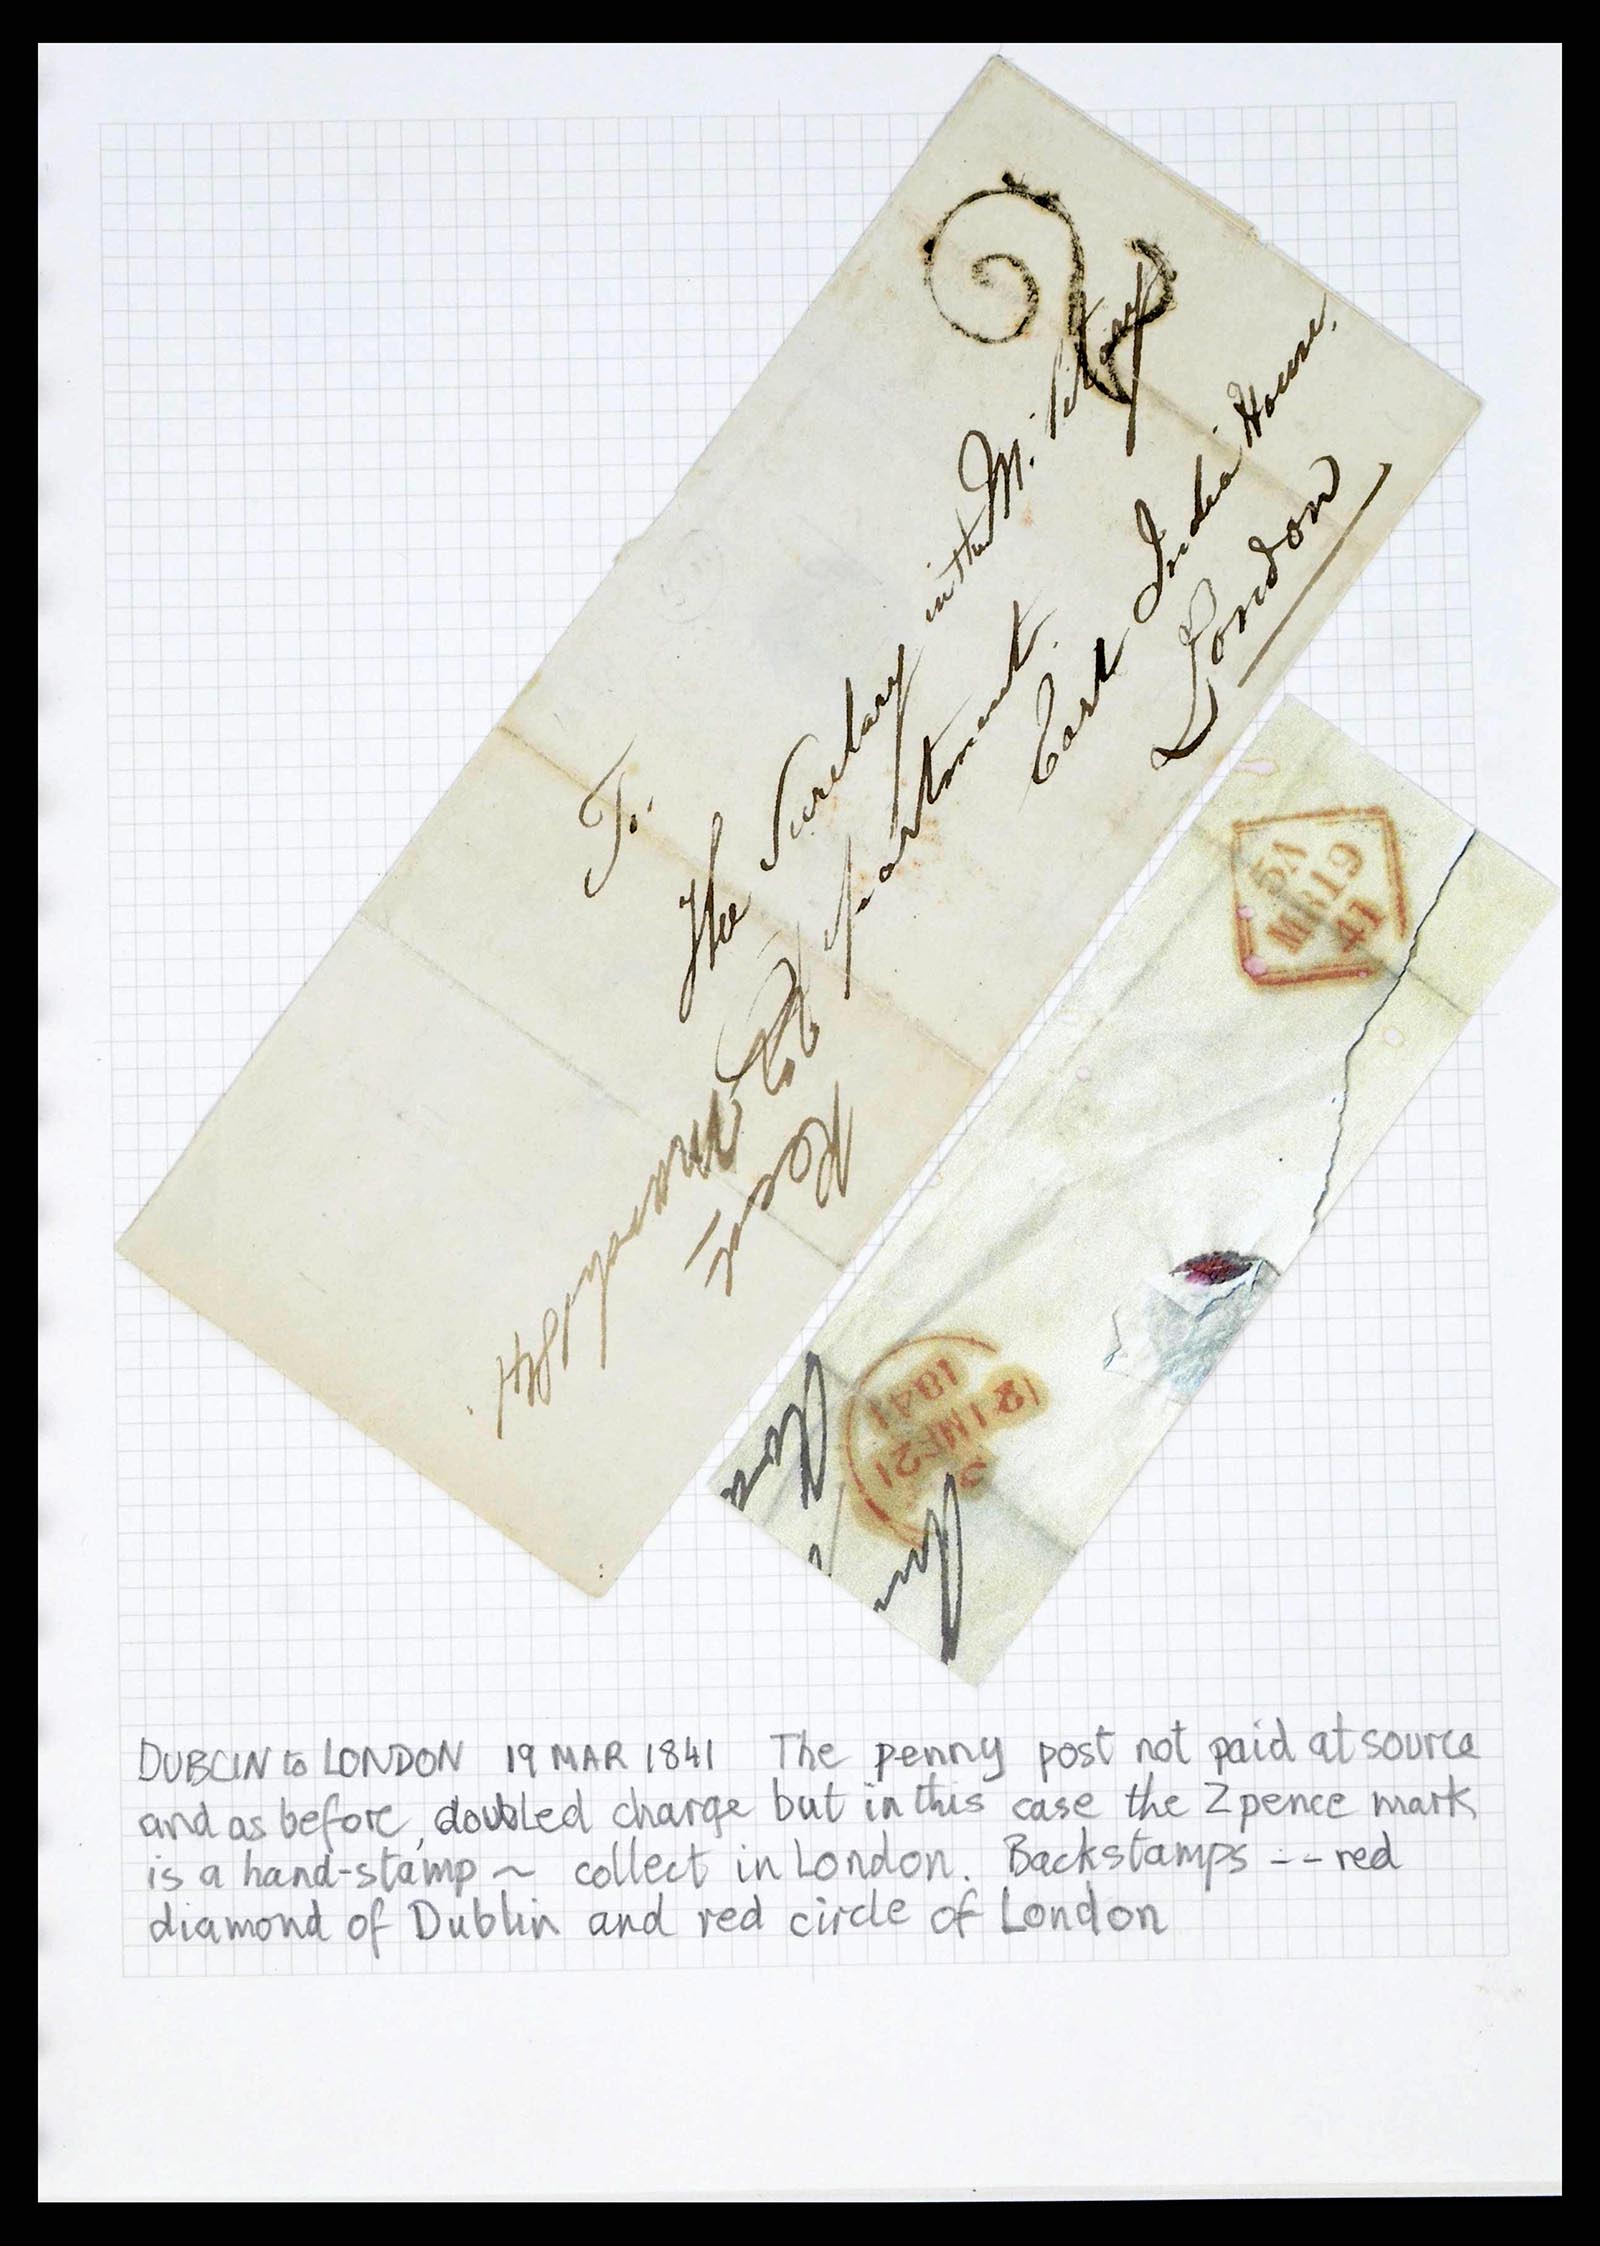 2
To.
The Secretary in the Military
Department.
East India House,
London
5A
MR 19
41
21 MR 21
1841
DUBLIN to LONDON 19 MAR 1841 The penny post not paid at source
and as before, doubled charge but in this case the 2 pence mark
is a hand-stamp ~ collect in London. Backstamps -- red
diamond of Dublin and red circle of London